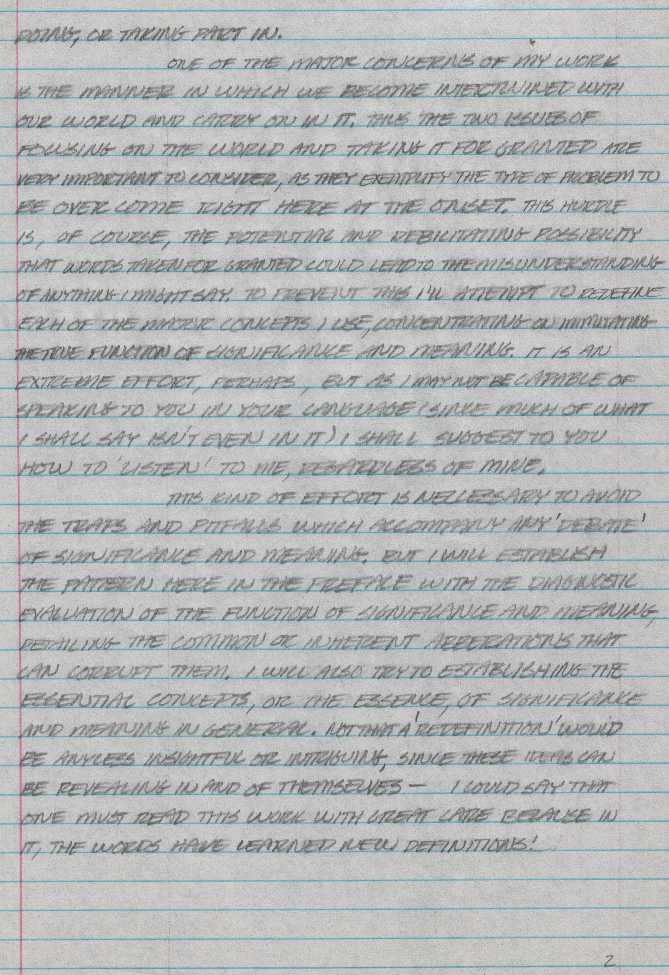 DOING, OR TAKING PART IN.
ONE OF THE MAJOR CONCERNS OF MY WORK
IS THE MANNER IN WHICH WE BECOME INTERTWINED WITH
OUR WORLD AND CARRY ON IN IT. THUS THE TWO ISSUES OF
FOCUSING ON THE WORLD AND TAKING IT FOR GRANTED ARE
VERY IMPORTANT TO CONSIDER, AS THEY EXEMPLIFY THE TYPE OF PROBLEM TO
BE OVER COME RIGHT HERE AT THE ONSET. THIS HURDLE
IS, OF COURSE, THE POTENTIAL AND DEBILITATING POSSIBILITY
THAT WORDS TAKEN FOR GRANTED COULD LEAD TO THE MISUNDERSTANDING
OF ANYTHING I MIGHT SAY. TO PREVENT THIS I'LL ATTEMPT TO REDEFINE
EACH OF THE MAJOR CONCEPTS I USE, CONCENTRATING ON IMMITATING
THE TRUE FUNCTION OF SIGNIFICANCE AND MEANING. IT IS AN
EXTREME EFFORT, PERHAPS, BUT AS I MAY NOT BE CAPABLE OF
SPEAKING TO YOU IN YOUR LANGUAGE (SINCE MUCH OF WHAT
I SHALL SAY ISN'T EVEN IN IT) I SHALL SUGGEST TO YOU
HOW TO 'LISTEN' TO ME, REGARDLESS OF MINE.
THIS KIND OF EFFORT IS NECCESSARY TO AVOID
THE TRAPS AND PITFALLS WHICH ACCOMPANY ANY 'DEBATE'
OF SIGNIFICANCE AND MEANING. BUT I WILL ESTABLISH
THE PATTERN HERE IN THE PREFACE WITH THE DIAGNOSTIC
EVALUATION OF THE FUNCTION OF SIGNIFICANCE AND MEANING,
DETAILING THE COMMON OR INHERENT ABERRATIONS THAT
CAN CORRUPT THEM. I WILL ALSO TRY TO ESTABLISHING THE
ESSENTIAL CONCEPTS, OR THE ESSENCE, OF SIGNIFICANCE
AND MEANING IN GENERAL. NOT THAT A 'REDEFINITION' WOULD
BE ANY LESS INSIGHTFUL OR INTRIGUING, SINCE THESE IDEAS CAN
BE REVEALING IN AND OF THEMSELVES — I COULD SAY THAT
ONE MUST READ THIS WORK WITH GREAT CARE BECAUSE IN
IT, THE WORDS HAVE LEARNED NEW DEFINITIONS!
2